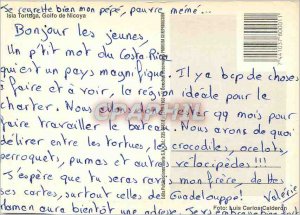 Je regrette bien mon pépé, pauvre mémé...
Isla Tortuga, Golfo de Nicoya
Bonjour les jeunes,
Un p'tit mot du Costa Rica
qui est un pays magnifique. Il y a bcp de choses
à faire et à voir, la région idéale pour le
charter. Nous allons donc rester qq mois pour
faire travailler le bateau. Nous avons de quoi
délirer entre les tortues, les crocodiles, ocelots,
perroquets, pumas et autres vélocipèdes!!!
J'espère que tu seras ravis mon frère, de
ses cartes, surtout celles de Guadeloupe! Valérie
maman aura bientôt une adresse. Je
Foto: Luis Carlos Calderón